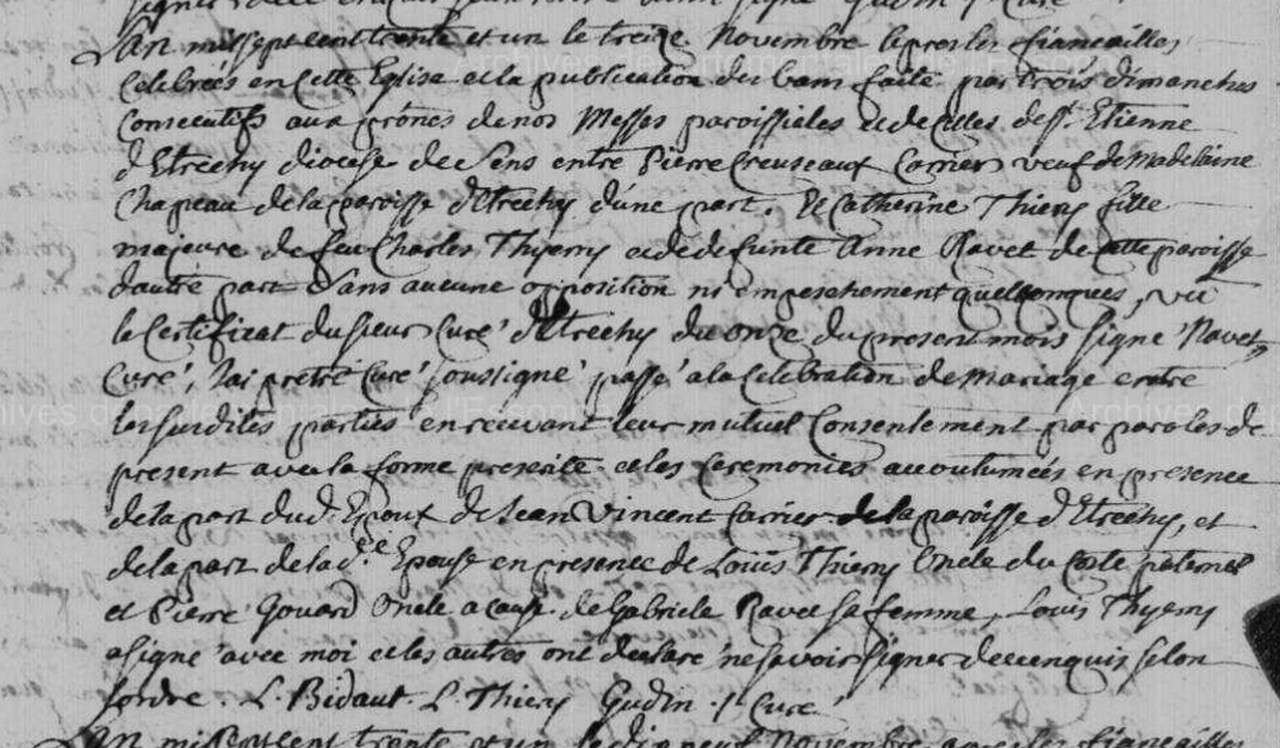 L'An mil sept cent trente et un le treize Novembre apres les fiancailles
Celebrées en Cette Eglise et la publication des bans faite par trois dimanches
Consecutifs aux prônes de nos Messes paroissiales et de celles de St. Etienne
d'Etrechy diocese de Sens entre Pierre Creuseaux Carrier veuf de Madelaine
Chapeau de la paroisse d'Etrechy d'une part. Et Catherine Thiery fille
majeure de feu Charles Thyerry et de defunte Anne Ravet de cette paroisse
d'autre part Sans aucune opposition ni empeschement quelconques, vû
le Certificat du sieur Curé d'Etrechy du onze du present mois signé Navet
Curé, J'ai prêtre Curé soussigné passé a la Celebration de Mariage entre
les susdites parties en recevant leur mutuel Consentement par paroles de
present avec la forme prescrite et les Ceremonies accoutumées en presence
de la part dud. Epoux de Jean Vincent Carrier de la paroisse d'Etrechy, et
de la part de lad.e Epouse en presence de Louis Thiery Oncle du Coste paternel
et Pierre Gouard Oncle a cause de Gabriele Ravet sa femme, Louis Thyerry
a signé avec moi et les autres ont declaré ne savoir signer de ce enquis selon
l'ordre. L. Bidaut. L. Thiery Gudin p. Curé
L'An mil sept cent trente et un le dix neuf Novembre apres les fiancailles